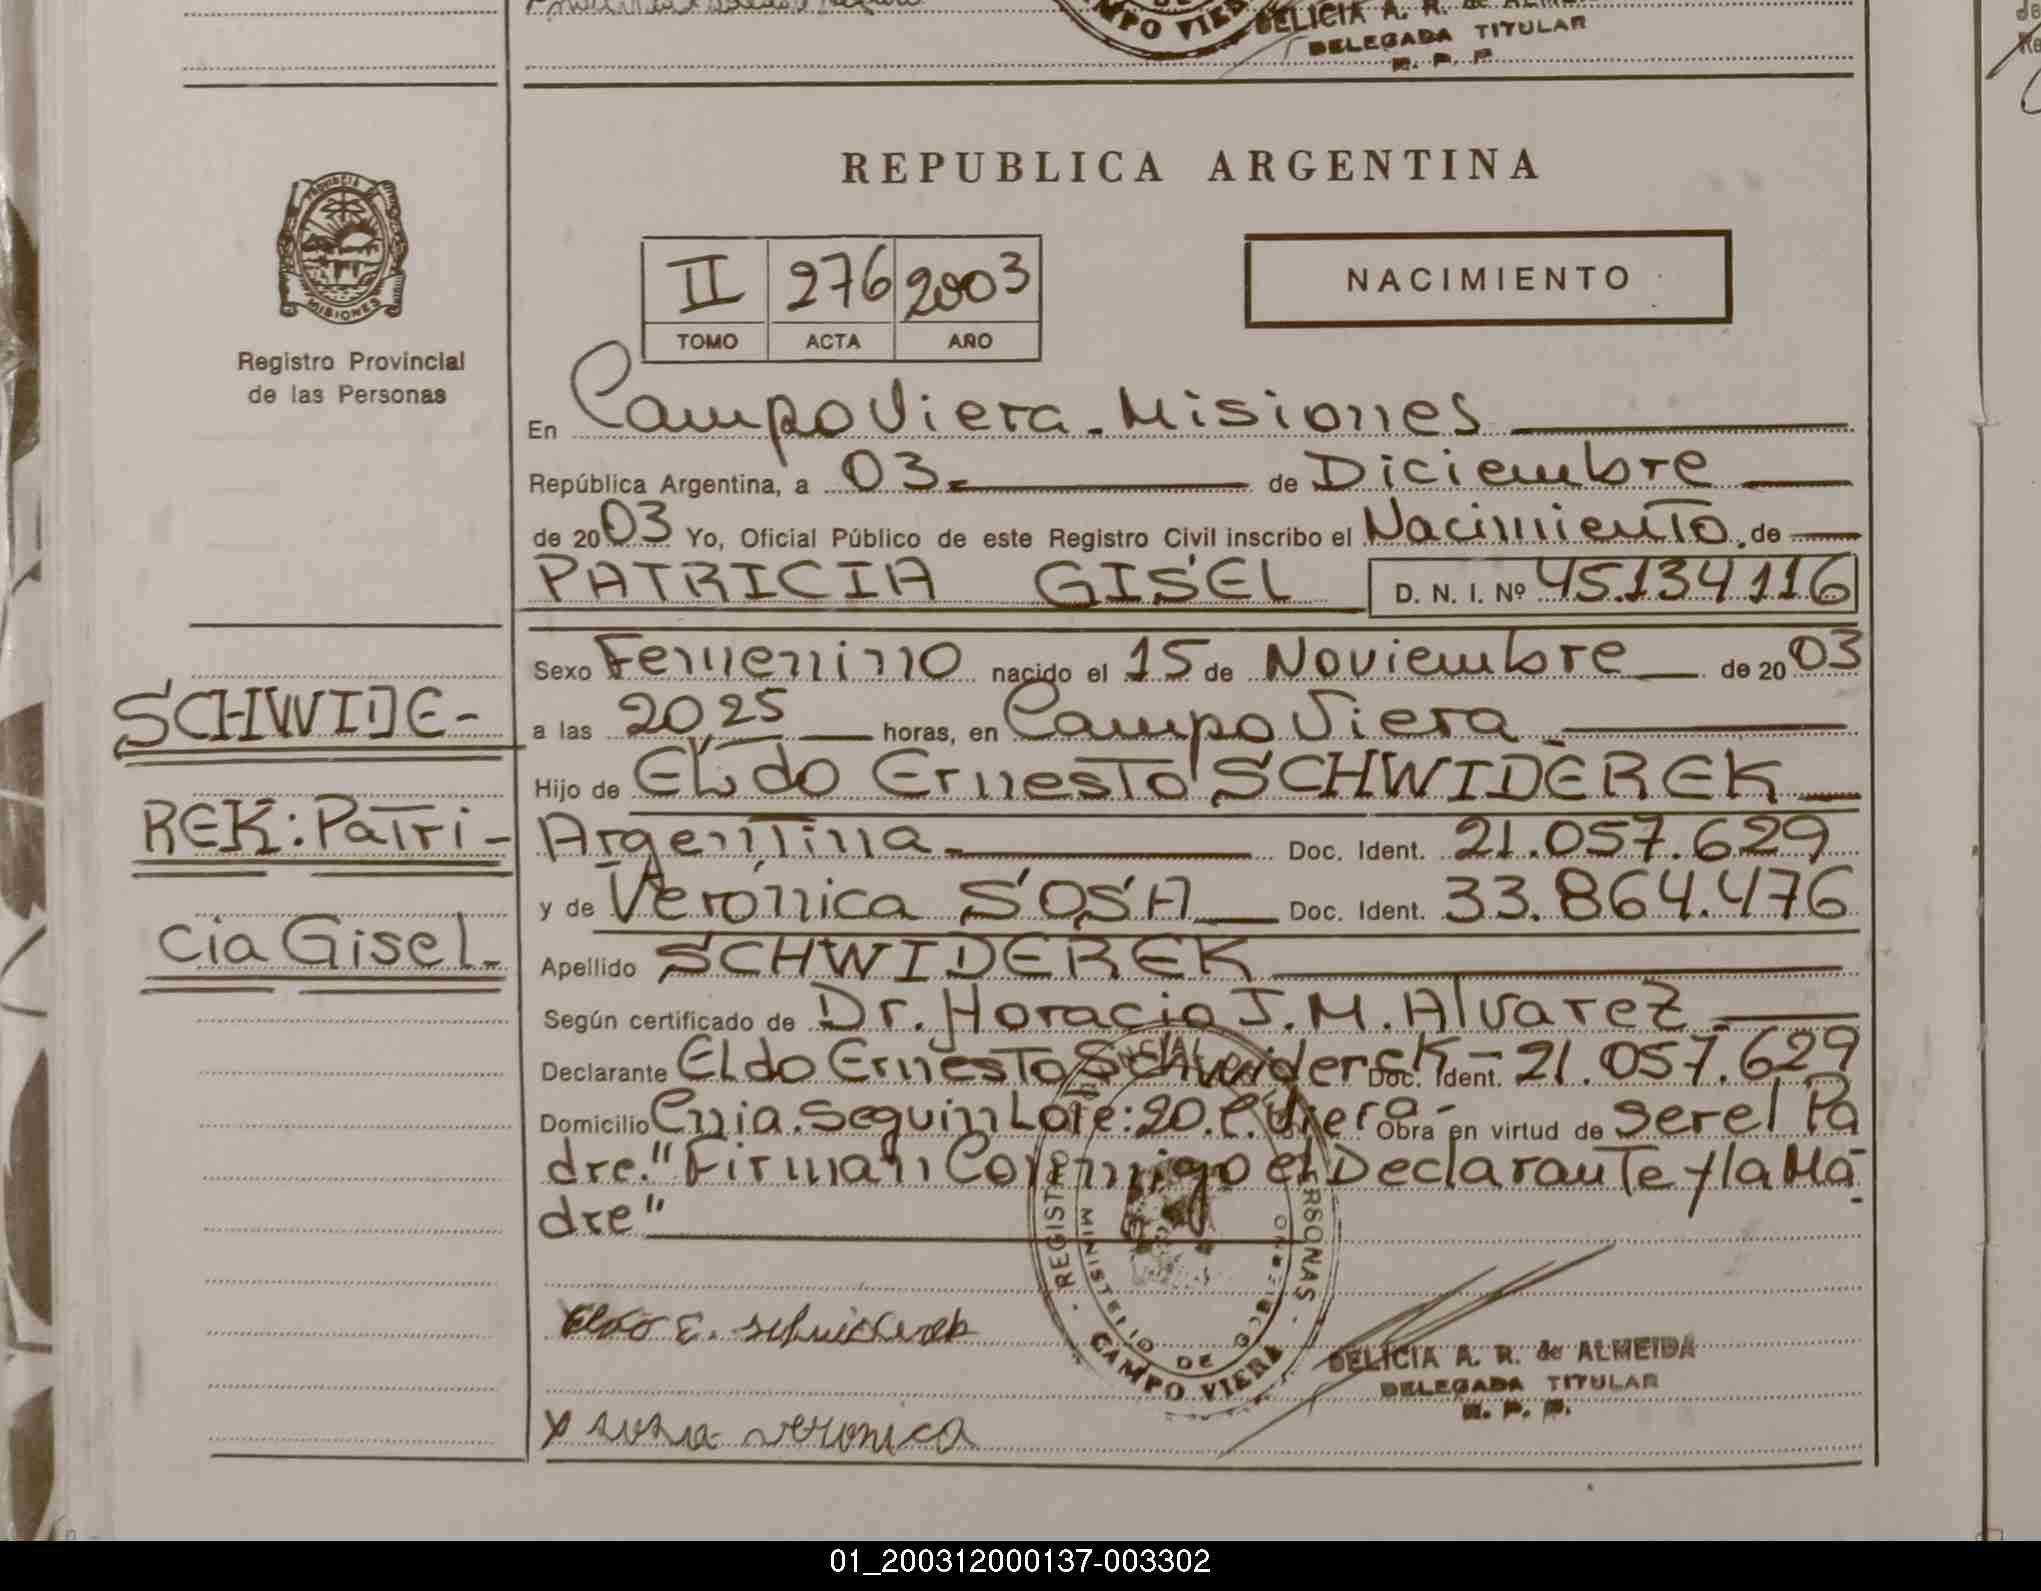 CAMPO VIERA
DELICIA A. R. de ALMEIDA
DELEGADA TITULAR
R. P. P.
PROVINCIA
MISIONES
Registro Provincial
de las Personas
SCHWIDE-
REK: Patri-
cia Gisel.
REPUBLICA ARGENTINA
II 276 2003
TOMO ACTA AÑO
NACIMIENTO
En Campo Viera - Misiones
República Argentina, a 03 de Diciembre
de 2003 Yo, Oficial Público de este Registro Civil inscribo el Nacimiento de
PATRICIA GISEL D. N. I. Nº 45.134.116
Sexo Femenino nacido el 15 de Noviembre de 2003
a las 20,25 horas, en Campo Viera
Hijo de Eldo Ernesto SCHWIDEREK
Argentina Doc. Ident. 21.057.629
y de Verónica SOSA Doc. Ident. 33.864.476
Apellido SCHWIDEREK
Según certificado de Dr. Horacio J. M. Alvarez
Declarante Eldo Ernesto Schwiderek - Doc. Ident. 21.057.629
Domicilio Cnia. Seguin Lote: 20. C. Viera - Obra en virtud de ser el Pa
dre. "Firman Conmigo el Declarante y la Ma-
dre"
Eldo E. Schwiderek
DELICIA A. R. de ALMEIDA
DELEGADA TITULAR
R. P. P.
CAMPO VIERA
MINISTERIO DE GOBIERNO
x sosa veronica
01_200312000137-003302